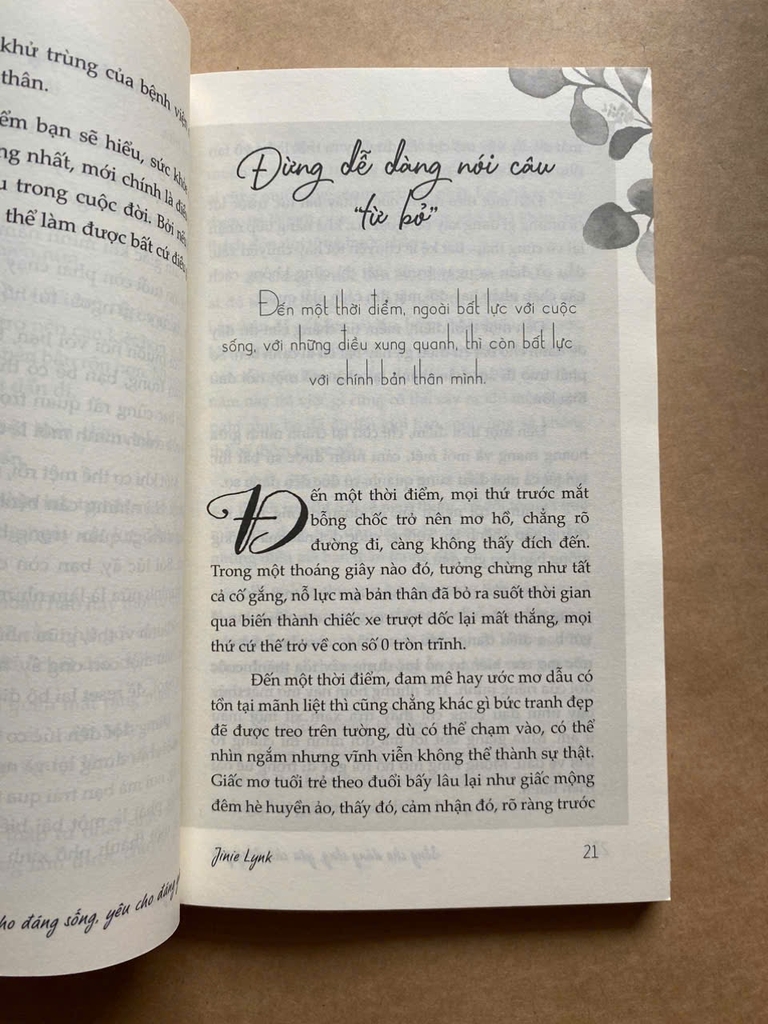 khử trùng của bệnh viện
thân.
bạn sẽ hiểu, sức
nhất, mới chính là
trong cuộc đời. Bởi
thể làm được bất cứ
đáng sống, yêu cho đáng
Đừng dễ dàng nói câu
“từ bỏ”
Đến một thời điểm, ngoài bất lực với cuộc
sống, với những điều xung quanh, thì còn bất lực
với chính bản thân mình.
Đến một thời điểm, mọi thứ trước mắt
bỗng chốc trở nên mơ hồ, chẳng rõ
đường đi, càng không thấy đích đến.
Trong một thoáng giây nào đó, tưởng chừng như tất
cả cố gắng, nỗ lực mà bản thân đã bỏ ra suốt thời gian
qua biến thành chiếc xe trượt dốc lại mất thắng, mọi
thứ cứ thế trở về con số 0 tròn trĩnh.
Đến một thời điểm, đam mê hay ước mơ dẫu có
tồn tại mãnh liệt thì cũng chẳng khác gì bức tranh đẹp
đẽ được treo trên tường, dù có thể chạm vào, có thể
nhìn ngắm nhưng vĩnh viễn không thể thành sự thật.
Giấc mơ tuổi trẻ theo đuổi bấy lâu lại như giấc mộng
đêm hè huyền ảo, thấy đó, cảm nhận đó, rõ ràng trước
Jinie Lynk
21